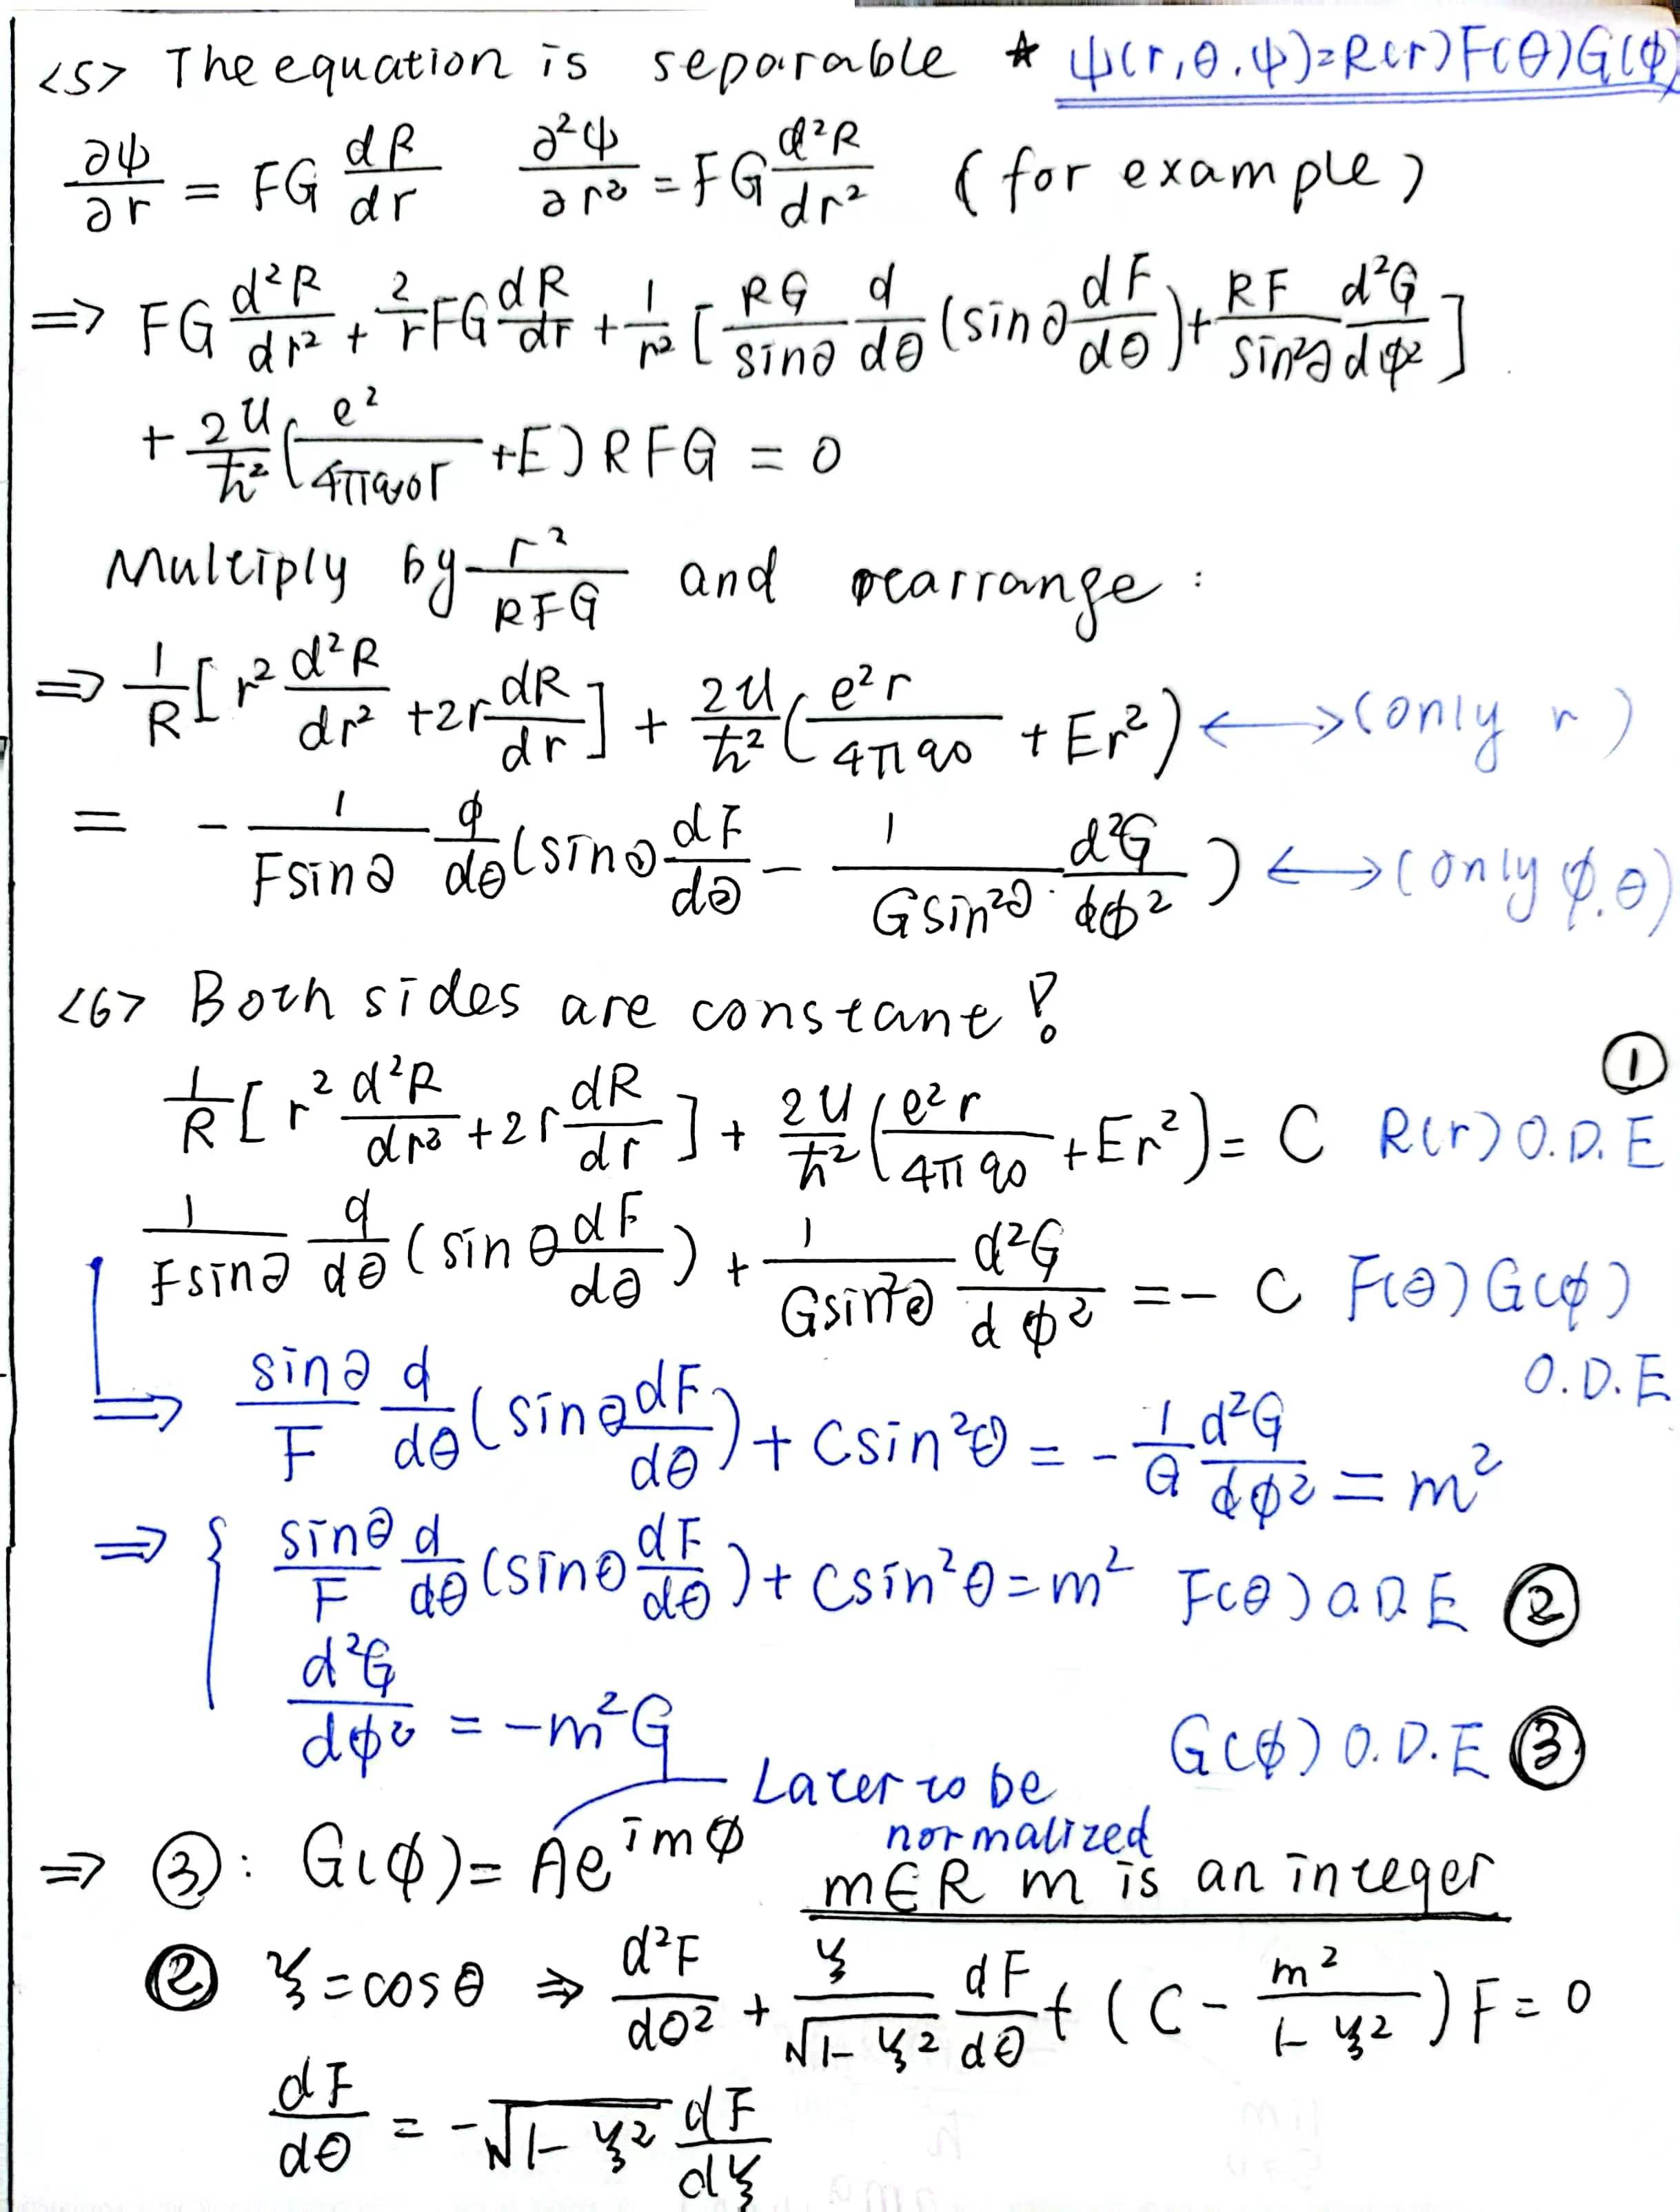 <5> The equation is separable * ψ(r,θ,ψ)=R(r)F(θ)G(ϕ)
∂ψ/∂r = FG dR/dr   ∂²ψ/∂r² = FG d²R/dr²   (for example)
⇒ FG d²R/dr² + 2/r FG dR/dr + 1/r² [ RG/sinθ d/dθ (sinθ dF/dθ) + RF/sin²θ d²G/dϕ² ]
+ 2u/ħ² ( e²/4πε0r + E) RFG = 0
Multiply by r²/RFG and rearrange :
⇒ 1/R [ r² d²R/dr² + 2r dR/dr ] + 2u/ħ² ( e²r/4πε0 + Er²) ⟷ (only r)
= - 1/Fsinθ d/dθ (sinθ dF/dθ - 1/Gsin²θ · d²G/dϕ² ) ⟷ (only ϕ.θ)
<6> Both sides are constant!
①
1/R [ r² d²R/dr² + 2r dR/dr ] + 2u/ħ² ( e²r/4πε0 + Er²) = C   R(r) O.D.E
1/Fsinθ d/dθ (sinθ dF/dθ) + 1/Gsin²θ d²G/dϕ² = - C   F(θ) G(ϕ)
O.D.E
⇒ sinθ/F d/dθ (sinθ dF/dθ) + Csin²θ = - 1/G d²G/dϕ² = m²
⇒ { sinθ/F d/dθ (sinθ dF/dθ) + Csin²θ = m²   F(θ) O.D.E ②
d²G/dϕ² = -m²G   G(ϕ) O.D.E ③
Later to be
normalized
⇒ ③ : G(ϕ) = Ae^imϕ   m∈R m is an integer
② ξ = cosθ ⇒ d²F/dθ² + ξ/√1-ξ² dF/dθ + (C - m²/1-ξ²) F = 0
dF/dθ = -√1-ξ² dF/dξ